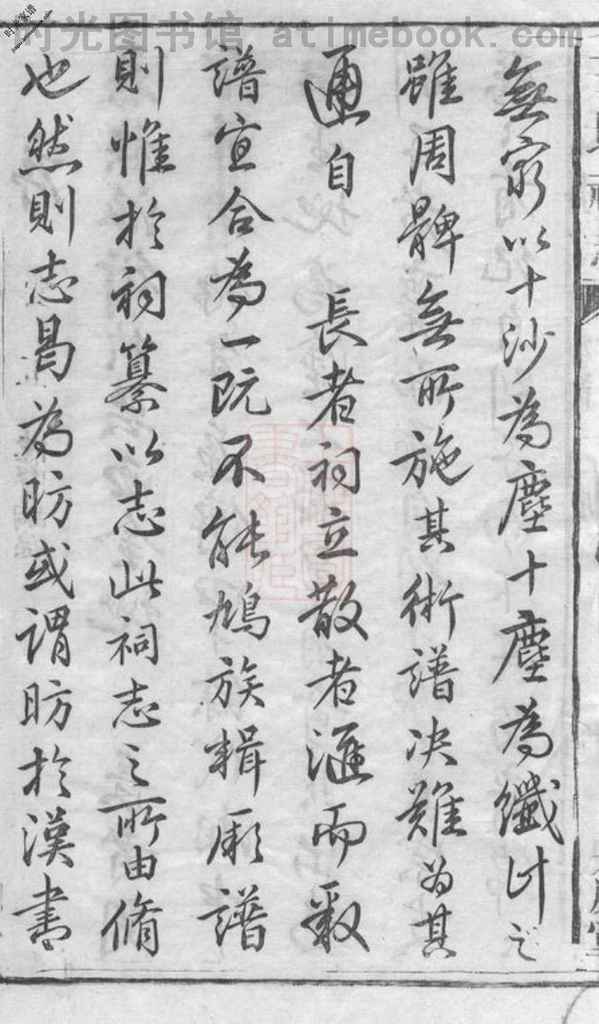 时光图书馆 atimebook.com
無窮以十沙為塵十塵為纖計之
雖周髀無所施其術譜决難為其
逓自 長者祠立散者滙而數
譜宜合為一既不能鳩族輯厥譜
則惟於祠纂以志此祠志之所由脩
也然則志曷為昉或謂昉於漢書